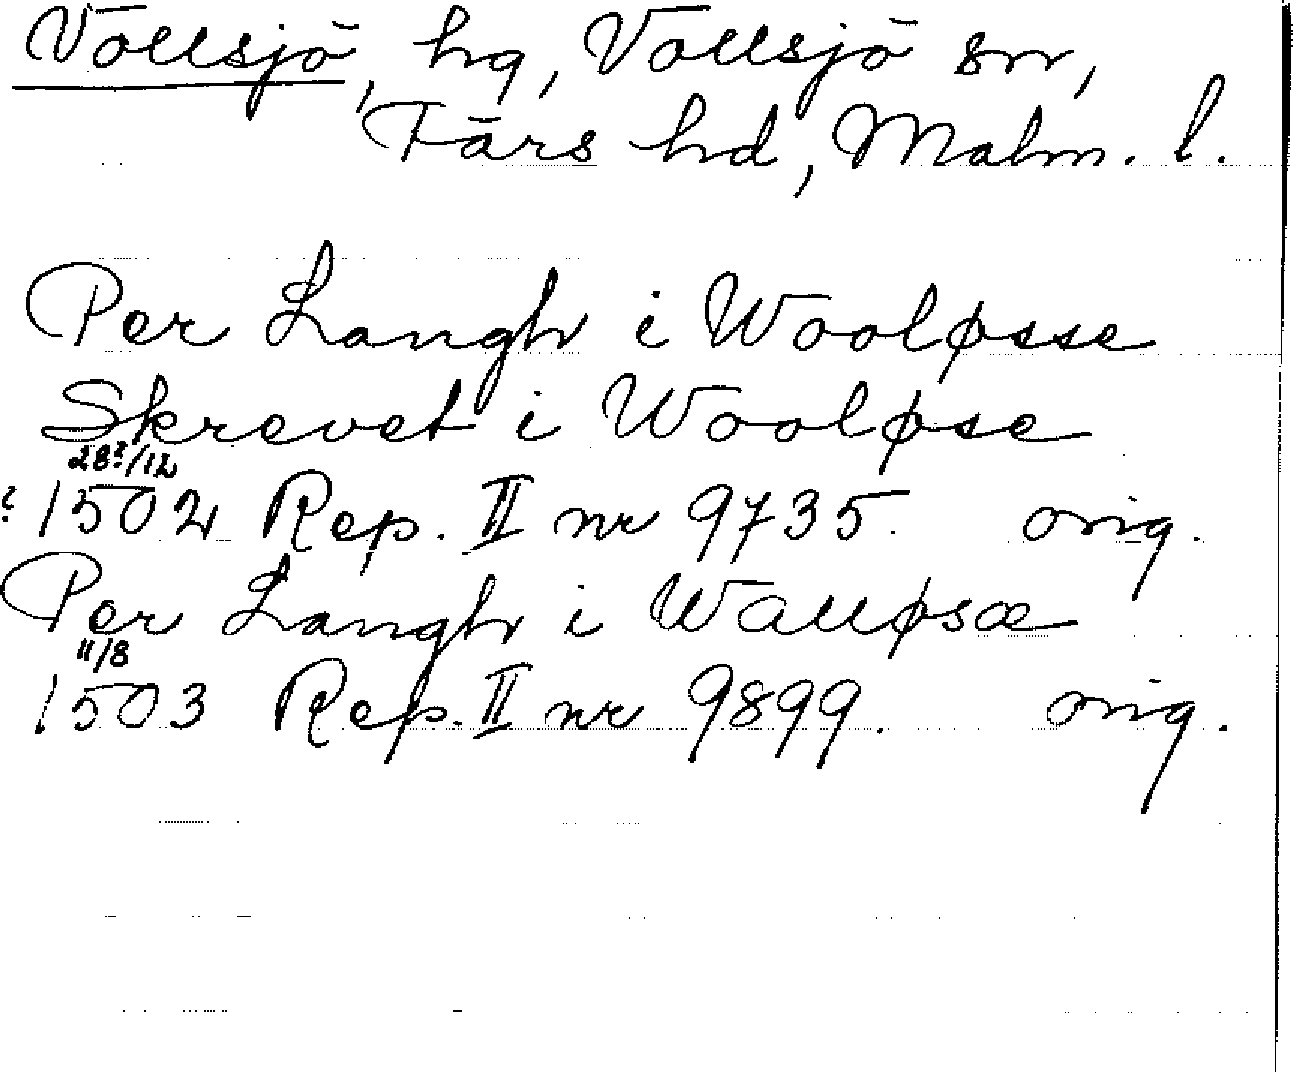 Vollsjö, hg, Vollsjö sn,
Färs hd, Malm. l.
Per Langh i Wooløsse
Skrevet i Wooløse
28?/12
? 1502 Rep. II nr 9735. orig.
Per Langh i Walløsæ
11/8
1503 Rep. II nr 9899. orig.